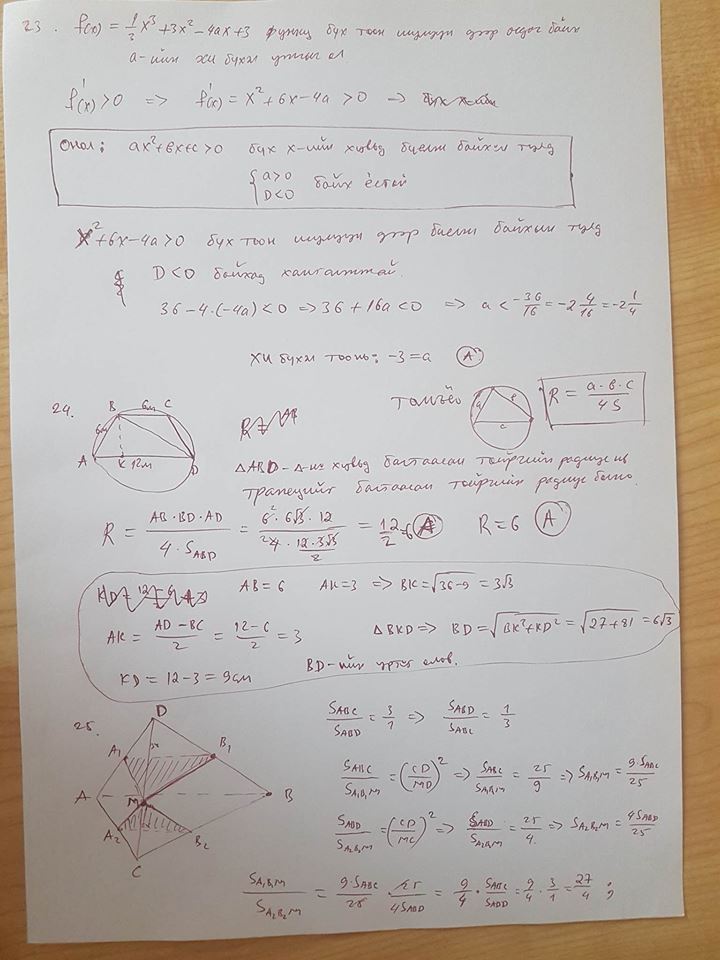 23. f(x) = 1/3 x³ + 3x² - 4ax + 3 функц бүх тоон шулуун дээр өсдөг байх
a-ийн хи бүхэл утгыг ол
f'(x) > 0 => f'(x) = x² + 6x - 4a > 0 =>
Онол: ax² + bx + c > 0 бүх x-ийн хувьд биелэгдэх байхын тулд
{ a>0
D<0 байх ёстой
x² + 6x - 4a > 0 бүх тоон шулуун дээр биелэх байхын тулд
D < 0 байхад хангалттай.
36 - 4·(-4a) < 0 => 36 + 16a < 0 => a < -36/16 = -2 4/16 = -2 1/4
ХИ бүхэл тоо нь: -3 = a (A)
24. B 6м C 6м A K 12м D
томъёо a b c R = a·b·c / 4S
△ABD-△-ны хувьд багтаасан тойргийн радиус нь
трапецийг багтаасан тойргийн радиус болно.
R = AB·BD·AD / 4·S_ABD = 6·6√3·12 / 4·12·3√3/2 = 12/2 = 6 (A) R = 6 (A)
AB = 6 AK = 3 => BK = √36-9 = 3√3
AK = AD - BC / 2 = 12-6 / 2 = 3 △BKD => BD = √BK² + KD² = √27+81 = 6√3
KD = 12 - 3 = 9см BD-ийн уртыг олов.
25. D A₁ B₁ A M B A₂ B₂ C
S_ABC / S_ABD = 3/1 => S_ABD / S_ABC = 1/3
S_ABC / S_A₁B₁M = (CD/MD)² => S_ABC / S_A₁B₁M = 25/9 => S_A₁B₁M = 9·S_ABC / 25
S_ABD / S_A₂B₂M = (CD/MC)² => S_ABD / S_A₂B₂M = 25/4 => S_A₂B₂M = 4S_ABD / 25
S_A₁B₁M / S_A₂B₂M = 9·S_ABC / 25 · 25 / 4S_ABD = 9/4 · S_ABC / S_ABD = 9/4 · 3/1 = 27/4 ;